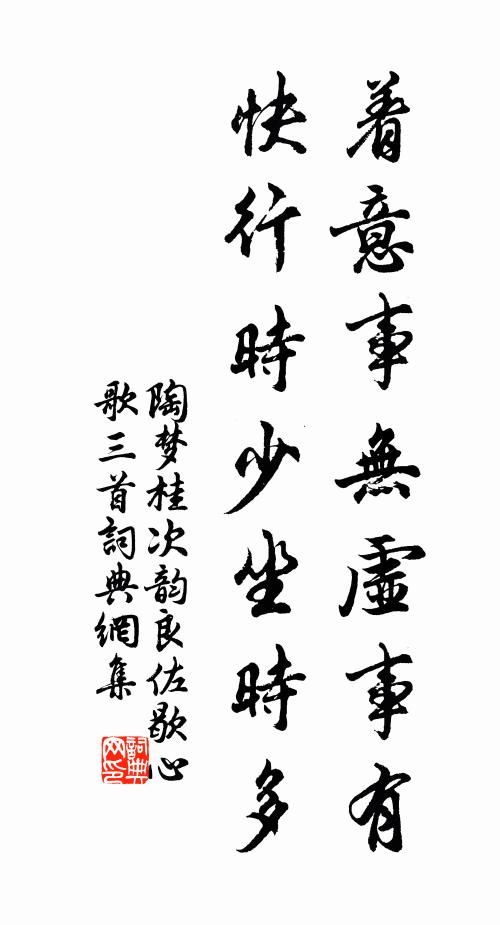 着意事無虛事有
快行時少坐時多
陶梦桂次韵良佐歇心
歌三首詞典網集
詞典网印